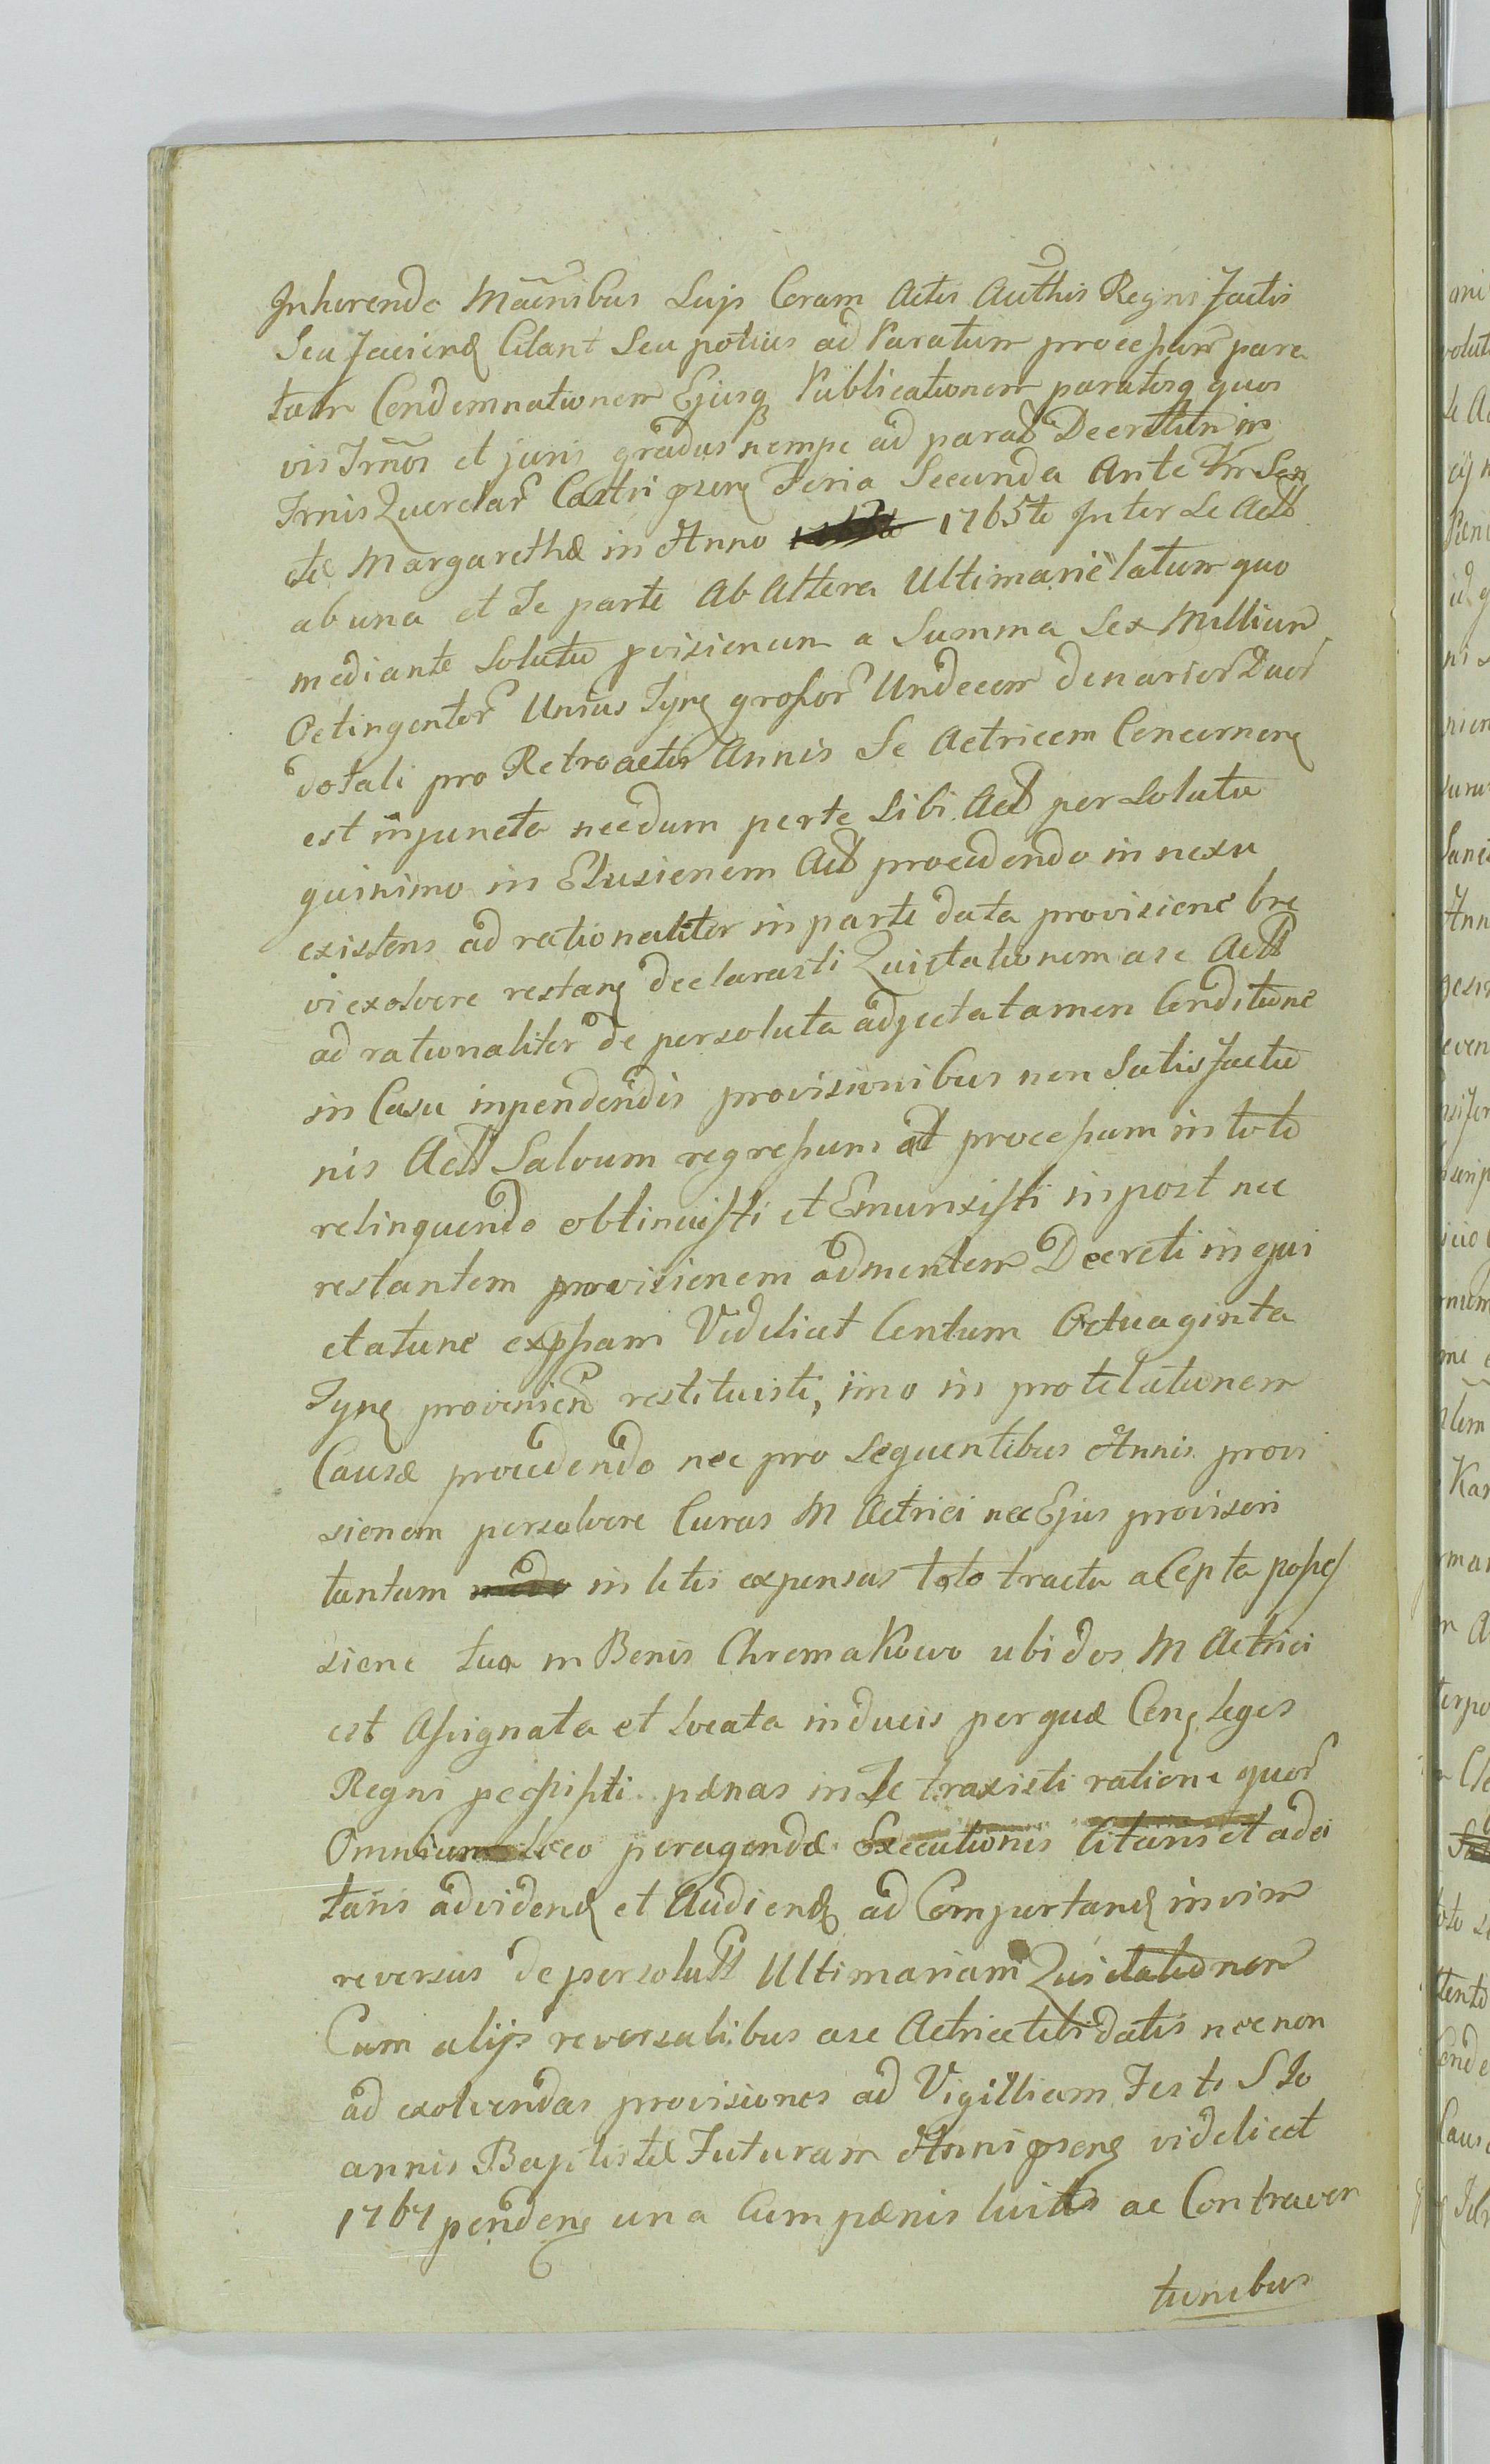 Inherendo Manibus Suis Coram Actis Authis Regni factis
Seu faciend Citant Seu potius ad Paratum processum para
tam Condemnationem Ejusq Publicationem paratosq quos
vis Trnos et juris gradus nempe ad parat Decretum in
Trnis Querelar Castri psen Feria Secunda Ante Fm San
ctæ Margarethæ in Anno 1765to Inter Se Act
ab una et Te parte Ab Altera Ultimarie latum quo
mediante Solutio pvisionum a Summa Sex Millium
Octingentor Unius Tyne grosor Undecem denarior Duor
dotali pro Retroactis Annis Se Actricem Concernen
est injuncta needum perte Sibi Act persoluta
quinimo in Elusionem Act procedendo in nexu
existens ad rationaliter in parte data provisione bre
vi exolvere restan declarasti Quietationem a se Act
ad rationaliter de persoluta adjecta tamen Conditione
in Casu inpendendis provisionibus non Satisfactio
nis Act Salvum regressum at processum in toto
relinquendo obtinuisti et Emunxisti in post nec
restantem provisionem admentem Decreti in ejus
etatune exppsam Videlicet Centum Octuaginta
Tyne provenien restituisti, imo in protelationem
Causæ procedendo nec pro Sequentibus Annis provi
sionem persolvere Curas M Actrici nec Ejus provisori
tantum in litis expensas toto tractu a Cepta posses
sione tua in Bonis Chromakowo ubi dos M Actrici
est Assignata et locata inducis per quæ Conq leges
Regni pænas in Te traxisti ratione quor
Omnium loco peragendæ Executionis Citaris et adci
taris advidend et Audiend ad Comportand invim
reversus de persolutt Ultimariam Quietationem
Cum alijs reversalibus a se Actrice tibi datis nec non
ad exolvendas provisiones ad Vigilliam Festi S Jo
annis Baptistæ Futuram Anni psens videlicet
1767 penden una Cum pænis luitis ac Contraven
tionibus